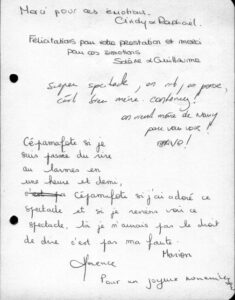 Merci pour ces émotions.
Cindy & Raphaël.
Félicitations pour votre prestation et merci
pour ces émotions
& Guillaume
Super spectacle, on rit, on pense,
c'est bien mené
on vient de Nancy
pour vous voir!
BRAVO!
Cépamafote si je
suis passée du rire
au larmes en
une heure et demi,
Cépamafote si j'ai adoré ce
spectacle et si je reviens voir ce
spectacle, là je n'aurais pas le droit
de dire c'est pas ma faute.
Marion
Florence
Pour un joyeux